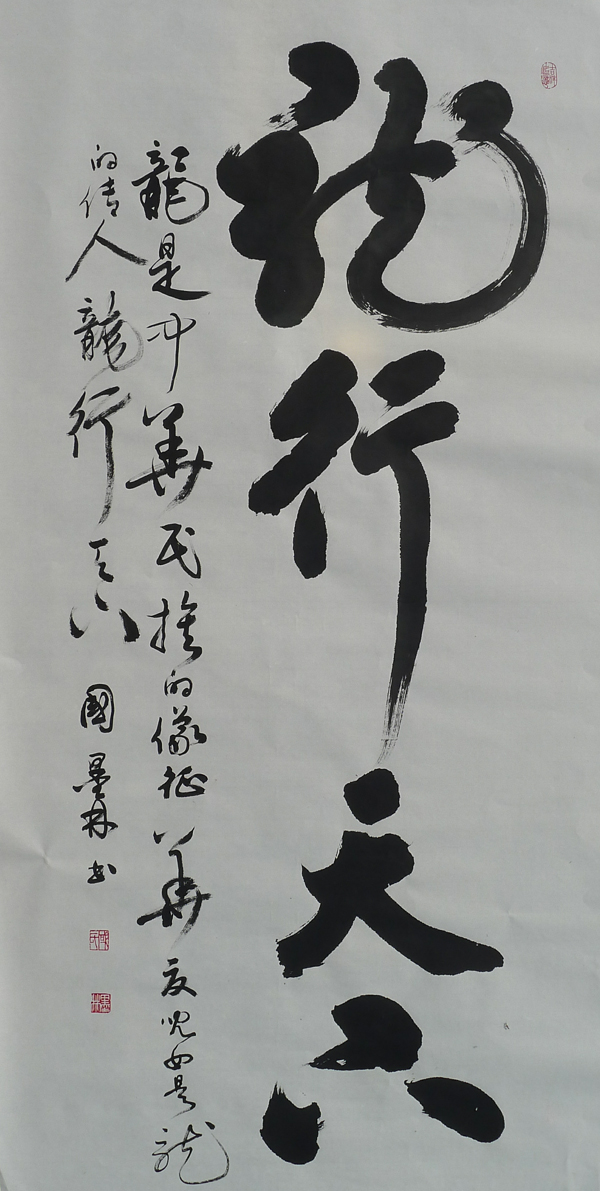 龍行天下
龍是中華民族的像征華夏兒女是龍
的傳人龍行天下國墨林书